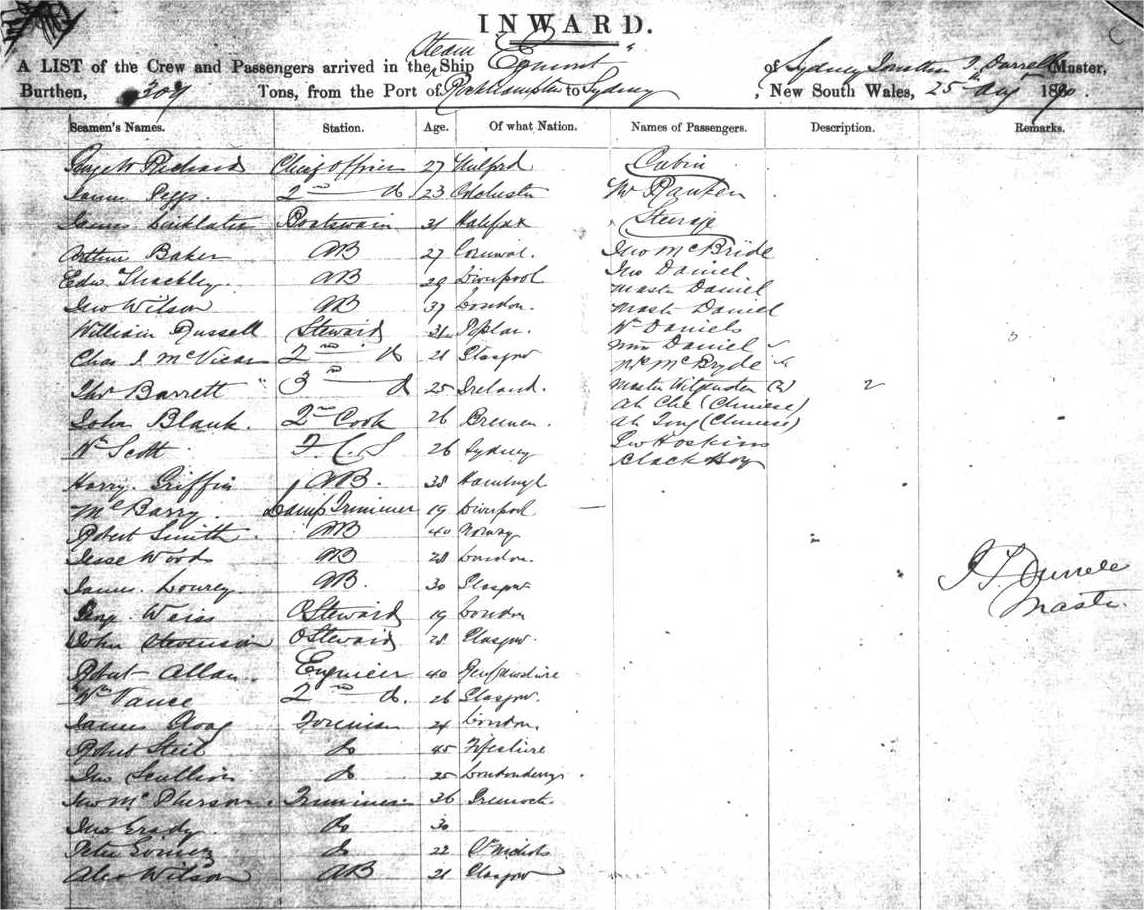 INWARD.
A LIST of the Crew and Passengers arrived in the Steam Ship Egmont of Sydney Master,
Burthen, 307 Tons, from the Port of Rockhampton to Sydney, New South Wales, 25th Aug 1870.
Seamen's Names. Station. Age. Of what Nation. Names of Passengers. Description. Remarks.
Chief Officer 27 Milford Cabin
2nd do 23 Colchester Mr Ranken
Boatswain 31 Halifax Steerage
Arthur Baker AB 27 Cornwal. Jno McBride
Edw. Thackley AB 29 Liverpool Jno Daniel
Jno Wilson AB 37 London. Mastr Daniel
William Russell Steward 31 Poplar. Mastr Daniel
Chas J McVicar 2nd do 21 Glasgow Wm Daniels
Thos Barrett 3rd do 25 Ireland. Mrs Daniel
John Blank. 2nd Cook 26 Bremen. McBryde
Wm Scott F.C.S 26 Sydney Master (2) 2
Harry Griffin AB. 38 Ah Che (Chinese)
McBarry. Lamp Trimmer 19 Liverpool (Chinese)
Robert Smith. AB 40 Norway Hoskins
Jesse Woods AB 28 London. black boy
James Lowrey AB. 30 Glasgow
Weiss O Steward 19 London
John Stevenson O Steward 28 Glasgow.
Robert Allan. Engineer 40 Renfrewshire
Wm Vance 2nd do. 26 Glasgow.
James Foreman 24 London.
Robert do 45 Fifeshire
Jno Scullion do 25 Londonderry.
Jno McPherson. Trimmer 36
Jno Grady do 30
Peter Gomez do 22 St Nichols
Alex Wilson AB 21 Glasgow
Master.